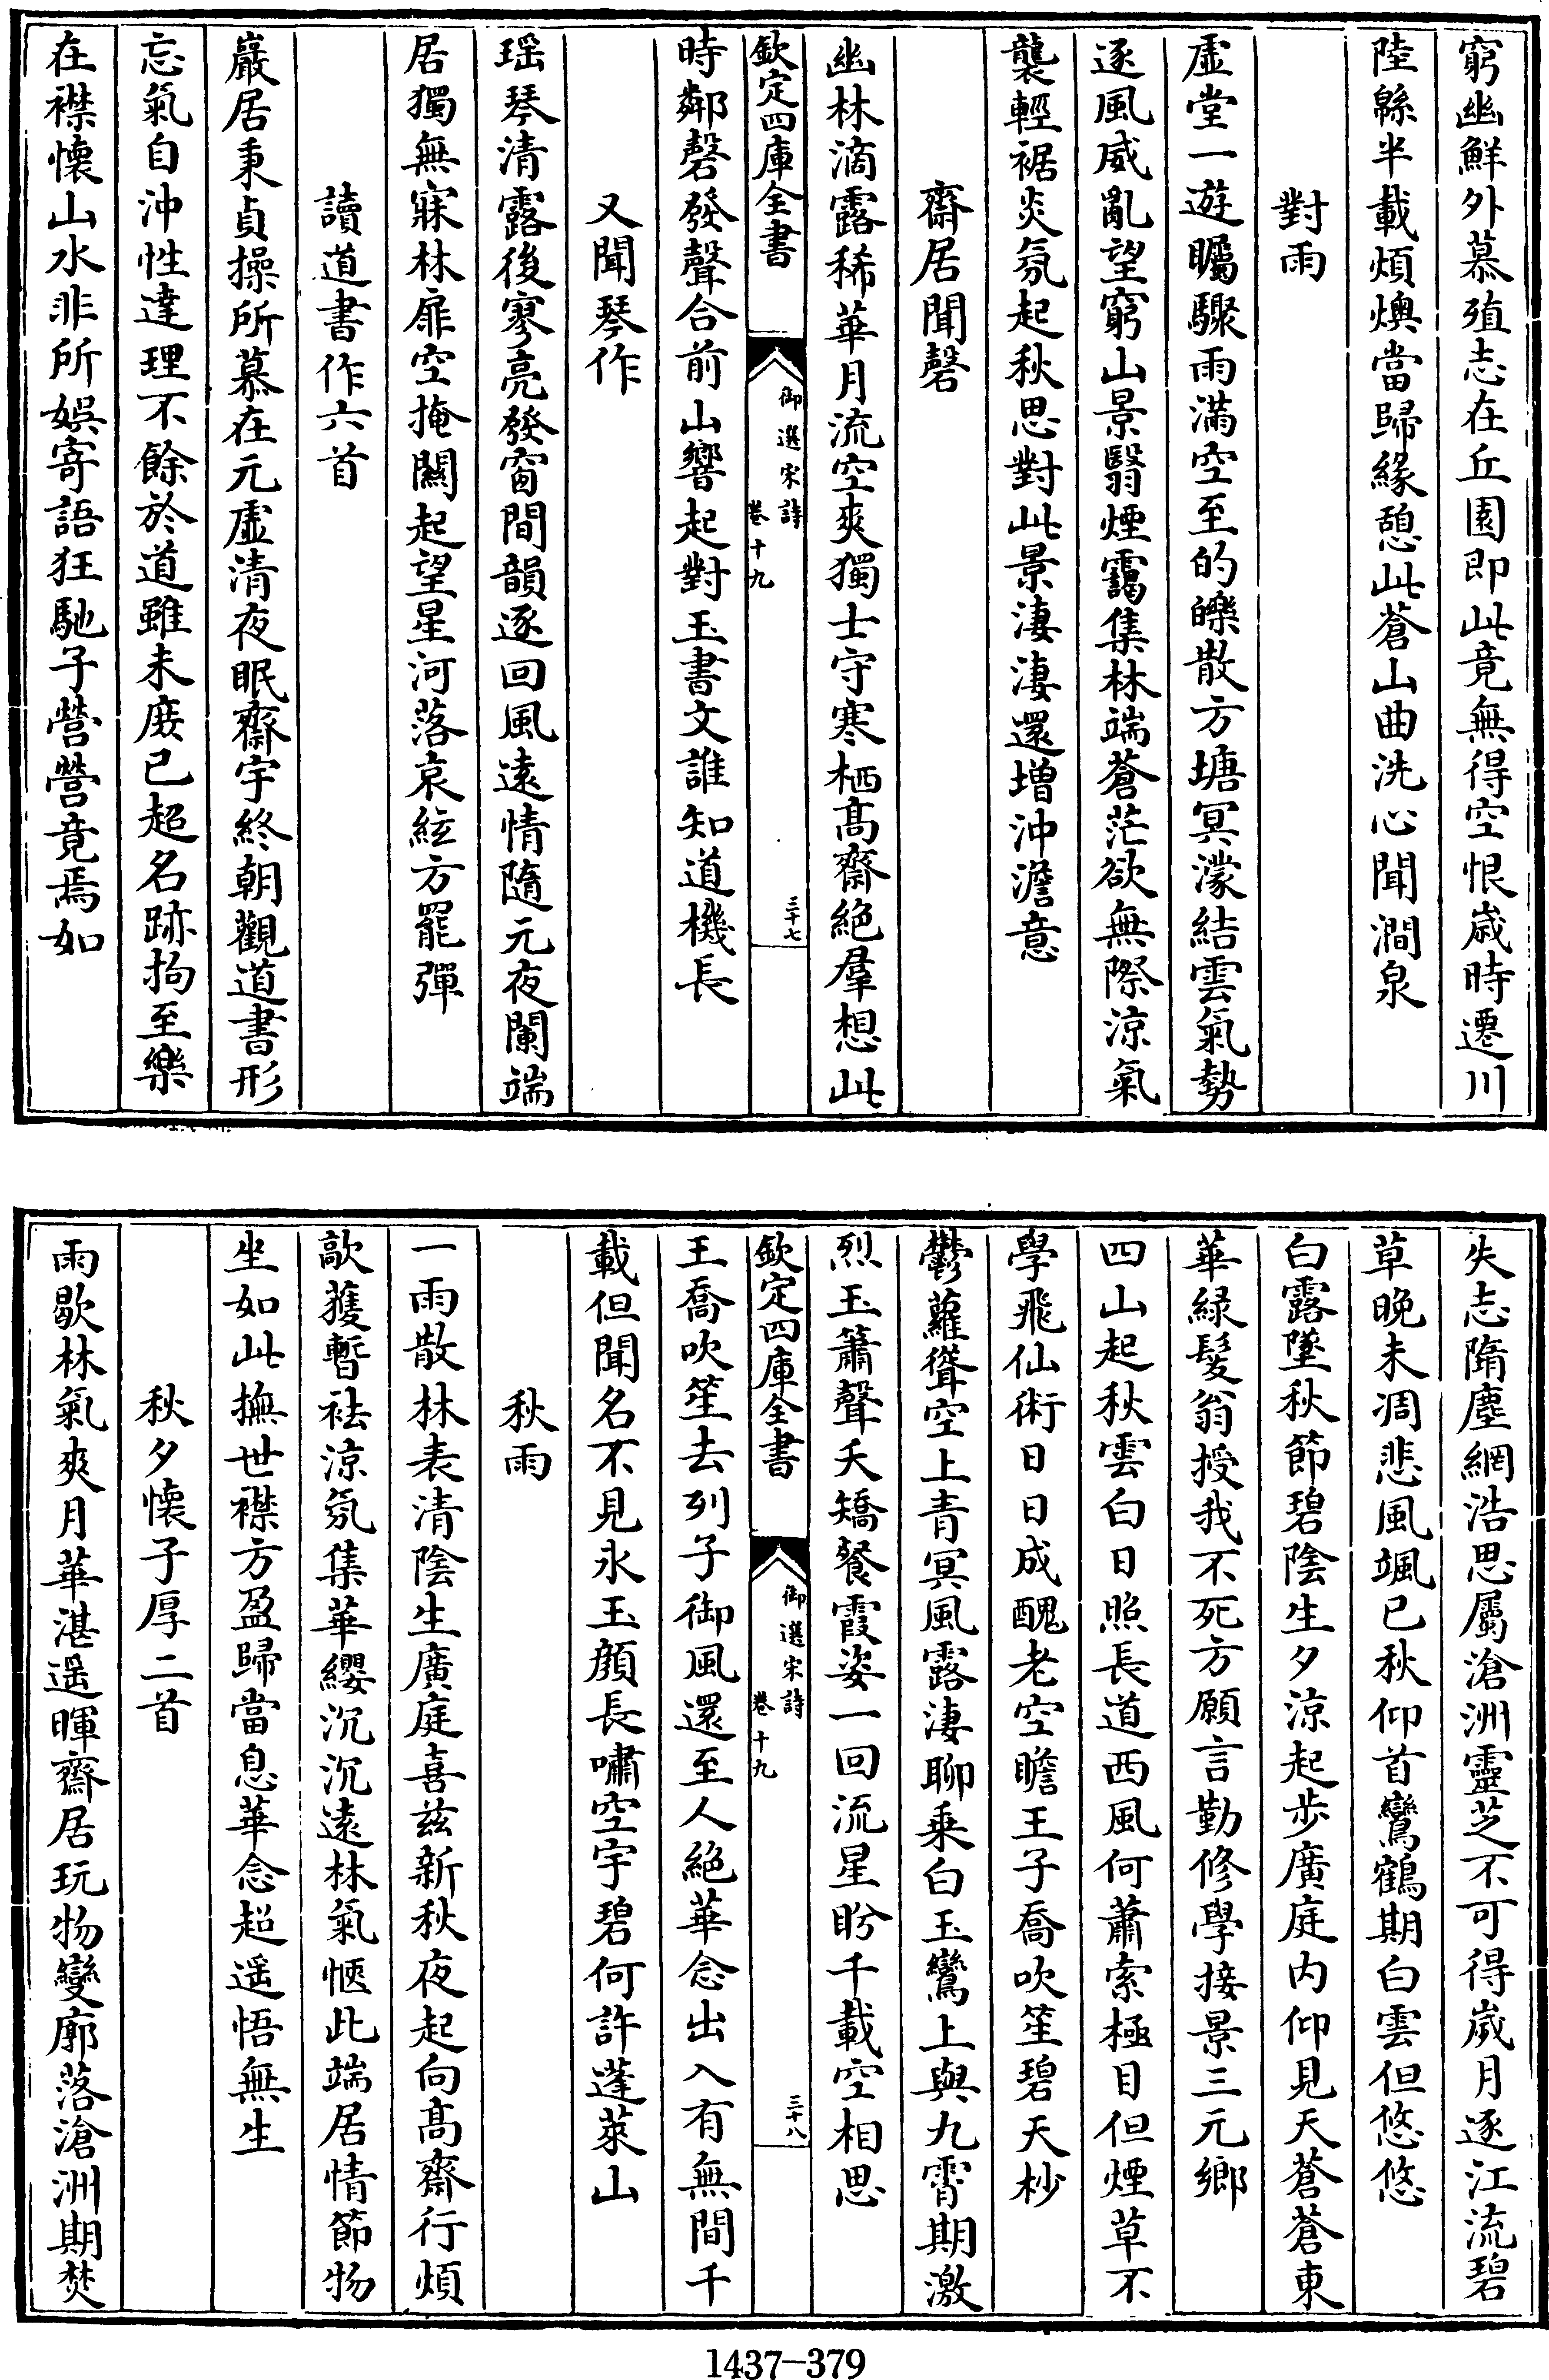 窮幽鮮外慕殖志在丘園即此竟無得空恨歳時遷川
陸緜半載煩燠當歸緣憩此蒼山曲洗心聞澗泉
對雨
虛堂一遊矚驟雨滿空至的皪散方塘冥濛結雲氣勢
逐風威亂望窮山景翳煙靄集林端蒼茫欲無際涼氣
襲輕裾炎氛起秋思對此景淒淒還增沖澹意
齋居聞磬
幽林滴露稀華月流空爽獨士守寒栖髙齋絶羣想此
欽定四庫全書
御選宋詩
卷十九
三十七
時鄰磬發聲合前山響起對玉書文誰知道機長
又聞琴作
瑶琴清露後寥亮發窗間韻逐回風遠情隨元夜闌端
居獨無寐林扉空掩關起望星河落哀絃方罷彈
讀道書作六首
巖居秉貞操所慕在元虛清夜眠齋宇終朝觀道書形
忘氣自沖性達理不餘於道雖未庻已超名跡拘至樂
在襟懐山水非所娛寄語狂馳子營營竟焉如
失志隨塵網浩思屬滄洲靈芝不可得嵗月逐江流碧
草晚未凋悲風颯已秋仰首鸞鶴期白雲但悠悠
白露墜秋節碧陰生夕涼起步廣庭内仰見天蒼蒼東
華緑髮翁授我不死方願言勤修學接景三元鄉
四山起秋雲白日照長道西風何蕭索極目但煙草不
學飛仙術日日成醜老空瞻王子喬吹笙碧天杪
鬱蘿聳空上青冥風露淒聊乘白玉鸞上與九霄期激
烈玉簫聲夭矯餐霞姿一回流星盻千載空相思
欽定四庫全書
御選宋詩
卷十九
三十八
王喬吹笙去列子御風還至人絶華念出入有無間千
載但聞名不見氷玉顔長嘯空宇碧何許蓬萊山
秋雨
一雨散林表清陰生廣庭喜兹新秋夜起向髙齋行煩
歊獲暫袪涼氛集華纓沉沉遠林氣愜此端居情節物
坐如此撫世襟方盈歸當息華念超遥悟無生
秋夕懐子厚二首
雨歇林氣爽月華湛遥暉齋居玩物變廓落滄洲期焚
1437-379